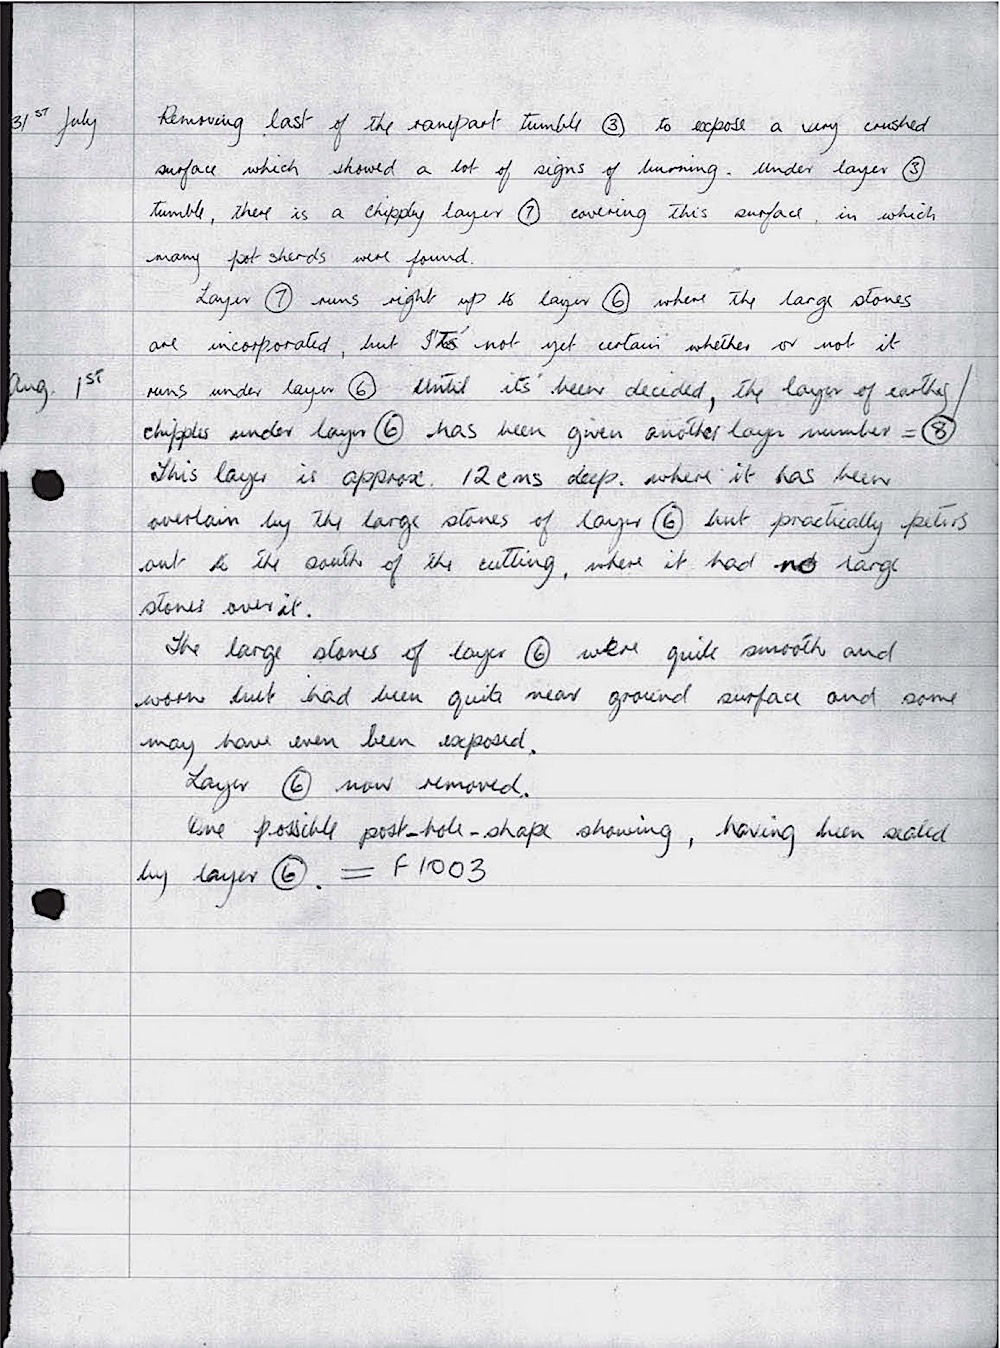 31ST July Removing last of the rampart tumble ③ to expose a very crushed
surface which showed a lot of signs of burning. Under layer ③
tumble, there is a chippby layer ⑦ covering this surface, in which
many pot sherds were found.
Layer ⑦ runs right up to layer ⑥ where the large stones
are incorporated, but it's not yet certain whether or not it
Aug. 1ST runs under layer ⑥ Until its' been decided, the layer of earthy/
chipples under layer ⑥ has been given another layer number = ⑧
This layer is approx. 12 cms deep. where it has been
overlain by the large stones of layer ⑥ but practically peters
out to the south of the cutting, where it had no large
stones over it.
The large stones of layer ⑥ were quite smooth and
worn but had been quite near ground surface and some
may have even been exposed.
Layer ⑥ now removed.
One possible post-hole-shape showing, having been sealed
by layer ⑥. = F1003